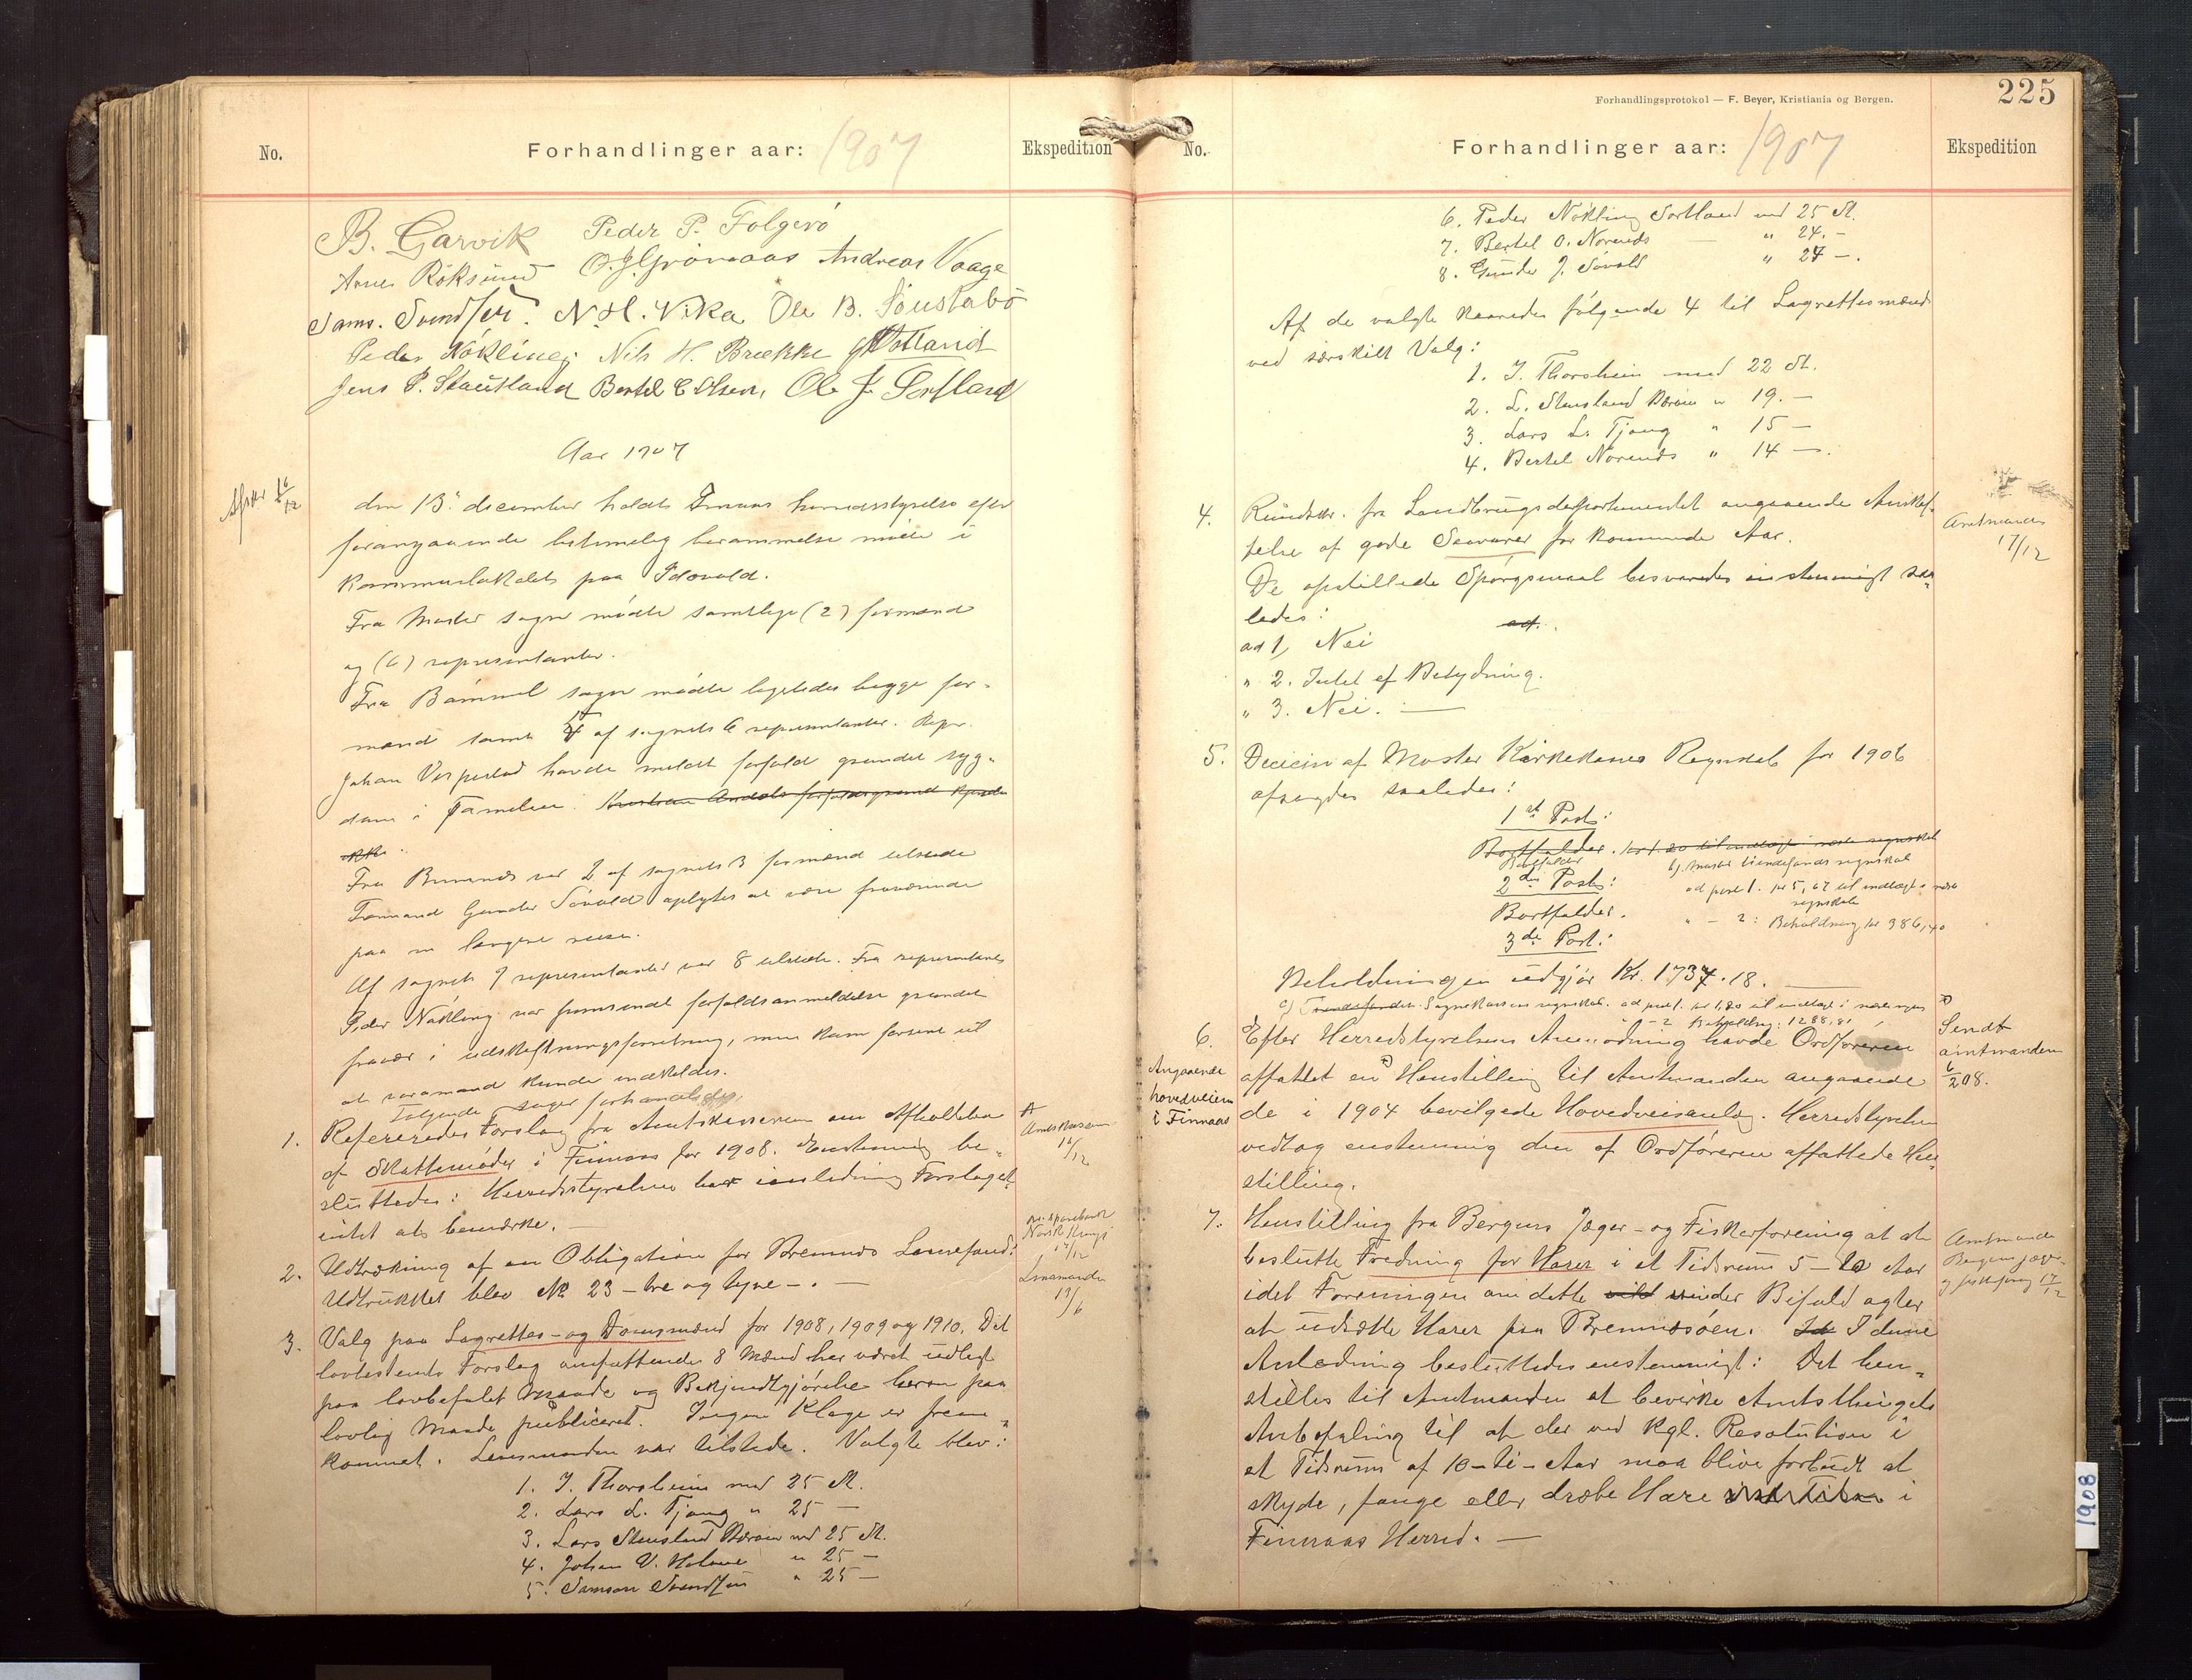 No.
Forhandlinger aar: 1907
Ekspedition
B. Garvik Peder P. Folgerö
Arnes Röksund O. J. Grönaas Andreas Vaage
Sams. Svendsen. N. H. Vika Ole B. Sönstabö
Peder Nökling. Nils H. Brække
Jens P. Stautland Bertel E Olsen, Ole J. Sortland
Aar 1907
Afskr 16/12
den 13de december holdt Finnaas herredsstyrelse efter
forangaaende betimelig berammelse møde i
kommunelokalet paa Idavold.
Fra Moster sogn mødte samtlige (2) formænd
og (6) representanter.
Fra Bømmel sogn mødte ligeledes begge for-
mænd samt 5 af sognets 6 representanter. Repr.
Johan Vespestad havde meldt forfald grundet syg-
dom i Familien.
ikke.
Fra Bremnes var 2 af sognets 3 formænd tilstede
Formand Gunder Søvold oplystes at være fraværende
paa en længere reise.
Af sognets 9 representanter var 8 tilstede. Fra representant
Peder Nökling var fremsendt forfaldsanmeldelse grundet
fravær i udskiftningsforretning, men kom forsent til
at varamand kunde indkaldes.
Følgende sager forhandledes,
1. Refereredes Forslag fra Amtskassereren om Afholdelse
af Skattemøder i Finnaas for 1908. Enstemmig be-
sluttedes: Herredsstyrelsen har i anledning Forslaget
intet at bemærke. —
Amtskassereren
14/12
2. Udtrækning af en Obligation for Bremnes Lånefond:
Udtrukket blev № 23 – tre og tyve –. —
17/12
3. Valg paa Lagrettes- og Domsmænd for 1908, 1909 og 1910. Det
lovbestemte Forslag omfattende 8 Mænd har været udlagt
paa lovbefalet Maade og Bekjendtgjørelse herom paa
lovlig Maade publiceret. Ingen Klage er frem-
kommet. Lensmanden var tilstede. Valgte blev:
Lensmanden
1. I. Thorsheim med 25 St.
2. Lars L. Tjong " 25 —
3. Lars Stensland Bærøen med 25 St.
4. Johan V. Holme " 25 —
5. Samson Svendsen " 25 —
225
Forhandlingsprotokol — F. Beyer, Kristiania og Bergen.
No.
Forhandlinger aar: 1907
Ekspedition
6. Peder Nökling Sortland med 25 St.
7. Bertel O. Norends — " 24. –
8. Gunder J. Søvold " 24 –.
Af de valgte kaaredes følgende 4 til Lagrettesmænd
ved særskilt Valg:
1. I. Thorsheim med 22 St.
2. L. Stensland Bærøen " 19. –
3. Lars L. Tjong " 15 –
4. Bertel Norends " 14 –.
4. Rundskr. fra Landbrugsdepartementet angaaende Anskaf-
felse af gode Saavarer for kommende Aar.
Amtmanden
17/12
De opstillede Spørgsmaal besvaredes enstemmigt saa-
ledes:
ad.
ad 1, Nei
" 2. Intet af Betydning.
" 3. Nei. —
5. Decision af Moster Kirkekasses Regnskab for 1906
afsagdes saaledes:
1ste Post:
Bortfalder. kr 1.20 til indtægt i næste regnskab
Bortfalder b). Moster tiendefonds regnskab
2den Post: ad post 1. kr 5,67 til indtægt i næste
regnskab
Bortfalder. " – 2: Beholdning kr 386,40
3de Post:
Beholdningen udgjør Kr. 1737.18. —
c) Sognekassens regnskab. ad post 1. kr 1,20 til indtægt i næste regn
" – 2 Beholdning: 1288,81
6. Efter Herredstyrelsens Anmodning havde Ordføreren
Angaaende
hovedveien
i Finnaas
affattet en Henstilling til Amtmanden angaaende
de i 1904 bevilgede Hovedveianlæg. Herredstyrelsen
vedtog enstemmig den af Ordføreren affattede Hen-
stilling.
Sendt
amtmanden
6/2 08.
7. Henstilling fra Bergens Jæger- og Fiskerforening at at
beslutte Fredning for Harer i et Tidsrum 5 – 10 Aar
idet Foreningen om dette vinder Bifald agter
at udsætte Harer paa Bremnesøen. I denne
Anledning besluttedes enstemmigt: Det hen-
stilles til Amtmanden at bevirke Amtsthingets
Anbefaling til at der ved Kgl. Resolution i
et Tidsrum af 10 – ti – Aar maa blive forbudt at
skyde, fange eller dræbe Hare i
Finnaas Herred. —
Amtmanden
Bergens jæger-
17/12
1908